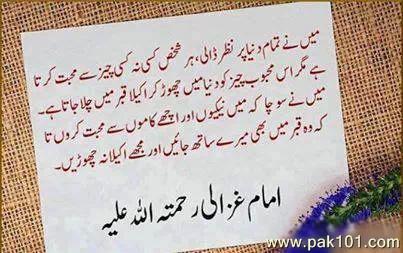 میں نے تمام دنیا پر نظر ڈالی، ہر شخص کسی نہ کسی چیز سے محبت کرتا
ہے مگر اس محبوب چیز کو دنیا میں چھوڑ کر اکیلا قبر میں چلا جاتا ہے۔
میں نے سوچا کہ میں نیکیوں اور اچھے کاموں سے محبت کروں تا
کہ وہ قبر میں بھی میرے ساتھ جائیں اور مجھے اکیلا نہ چھوڑیں۔
امام غزالی رحمتہ اللہ علیہ
www.pak101.com